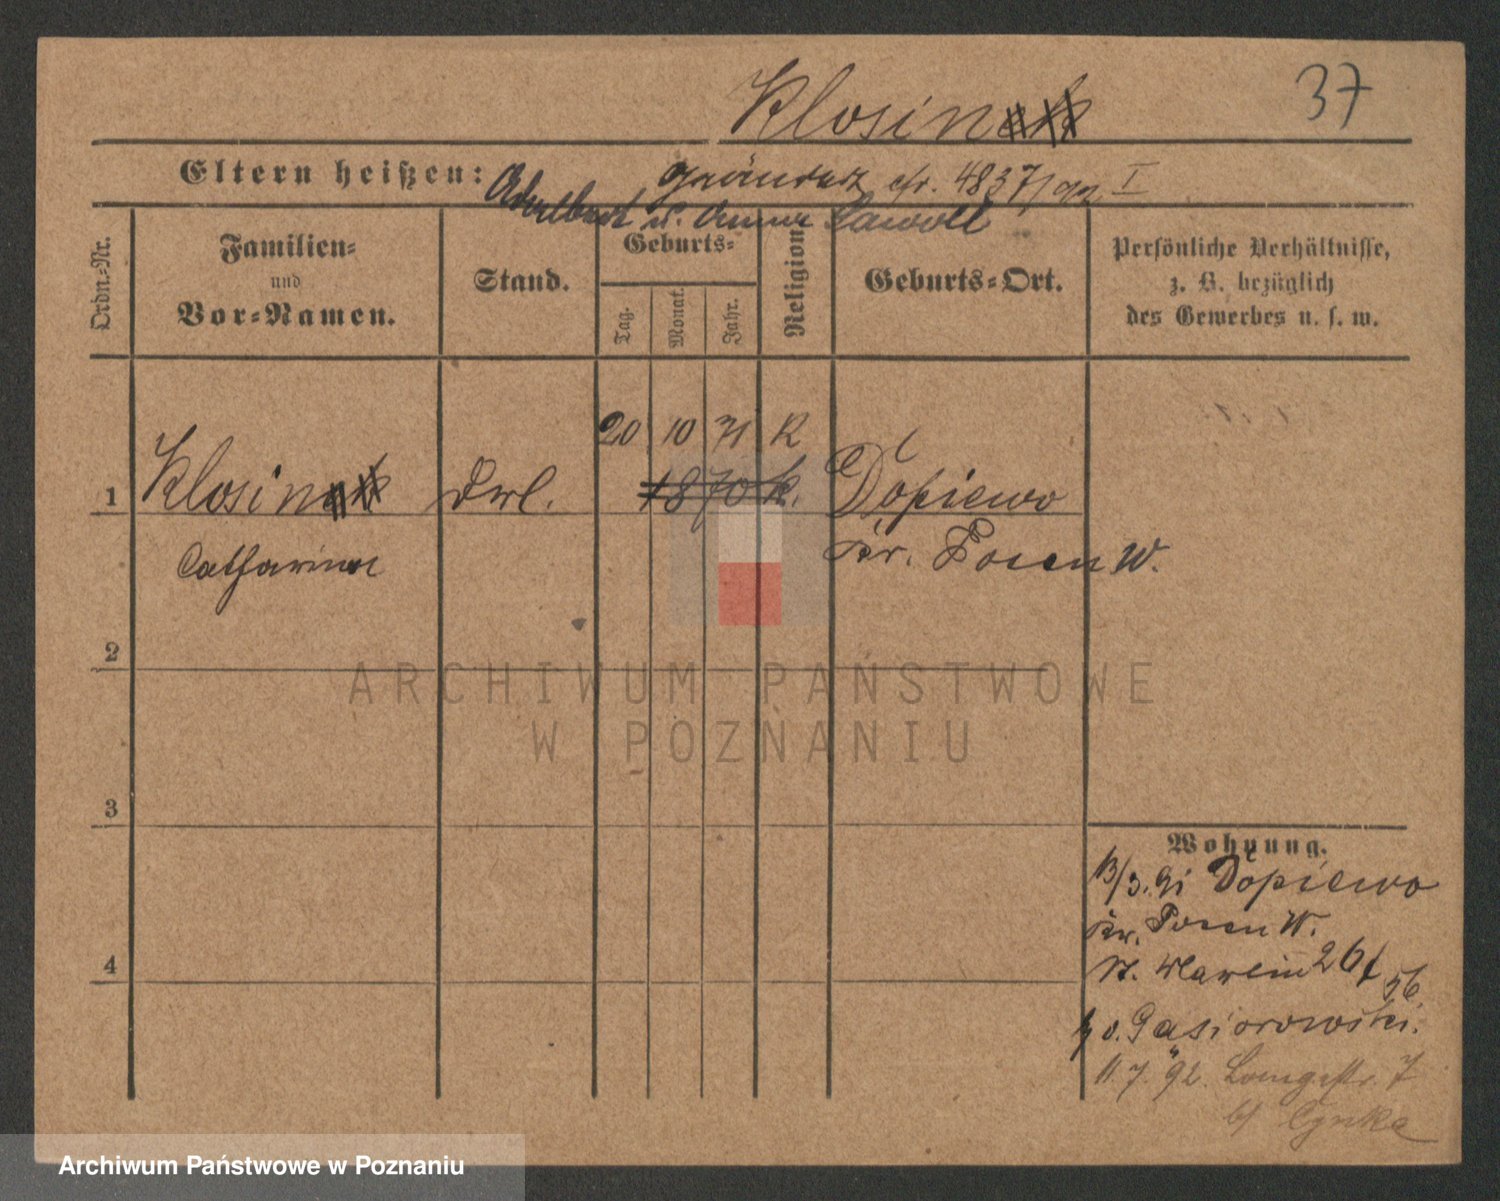 Klosin
37
Eltern heißen: Adalbert u. Anna Lawoll
geändert cfr. 4837/92 I
Ordn.-Nr.
Familien-
und
Vor-Namen.
Stand.
Geburts-
Tag.
Monat.
Jahr.
Religion
Geburts-Ort.
Persönliche Verhältnisse,
z. B. bezüglich
des Gewerbes u. s. w.
20 10 71 K
1 Klosin
1870 k. Dopiewo
Catharina
Kr. Posen W.
2
3
4
Wohnung.
13/3. 91 Dopiewo
Kr. Posen W.
St. Martin 26/
56
b/ v. Gasiorowski.
11. 7. 92. Langestr. 7
b/ Cynka
ARCHIWUM PAŃSTWOWE
W POZNANIU
Archiwum Państwowe w Poznaniu